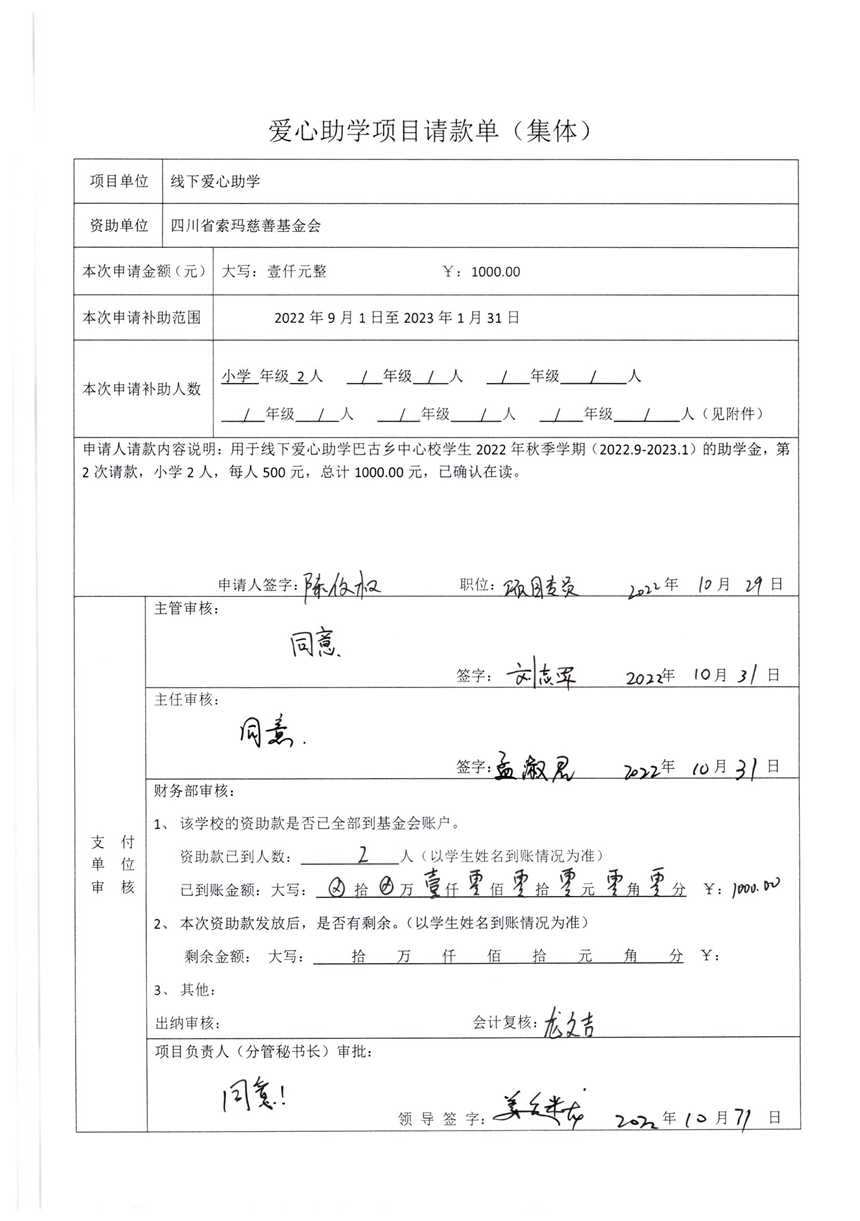 爱心助学项目请款单（集体）
项目单位 线下爱心助学
资助单位 四川省索玛慈善基金会
本次申请金额（元） 大写：壹仟元整 ￥：1000.00
本次申请补助范围 2022 年 9 月 1 日至 2023 年 1 月 31 日
本次申请补助人数
小学 年级 2 人 / 年级 / 人 / 年级 / 人
/ 年级 / 人 / 年级 / 人 / 年级 / 人（见附件）
申请人请款内容说明：用于线下爱心助学巴古乡中心校学生 2022 年秋季学期（2022.9-2023.1）的助学金，第
2 次请款，小学 2 人，每人 500 元，总计 1000.00 元，已确认在读。
申请人签字： 职位：项目专员 2022 年 10 月 29 日
支 付
单 位
审 核
主管审核：
同意.
签字：刘志军 2022年 10 月 31 日
主任审核：
同意.
签字：孟淑君 2022年 10 月 31 日
财务部审核：
1、 该学校的资助款是否已全部到基金会账户。
资助款已到人数： 2 人（以学生姓名到账情况为准）
已到账金额：大写： ⊗ 拾 ⊗ 万 壹 仟 零 佰 零 拾 零 元 零 角 零 分 ￥：1000.00
2、 本次资助款发放后，是否有剩余。（以学生姓名到账情况为准）
剩余金额： 大写： 拾 万 仟 佰 拾 元 角 分 ￥：
3、 其他：
出纳审核： 会计复核：龙文吉
项目负责人（分管秘书长）审批：
同意！
领 导 签 字： 2022 年 10 月 31 日